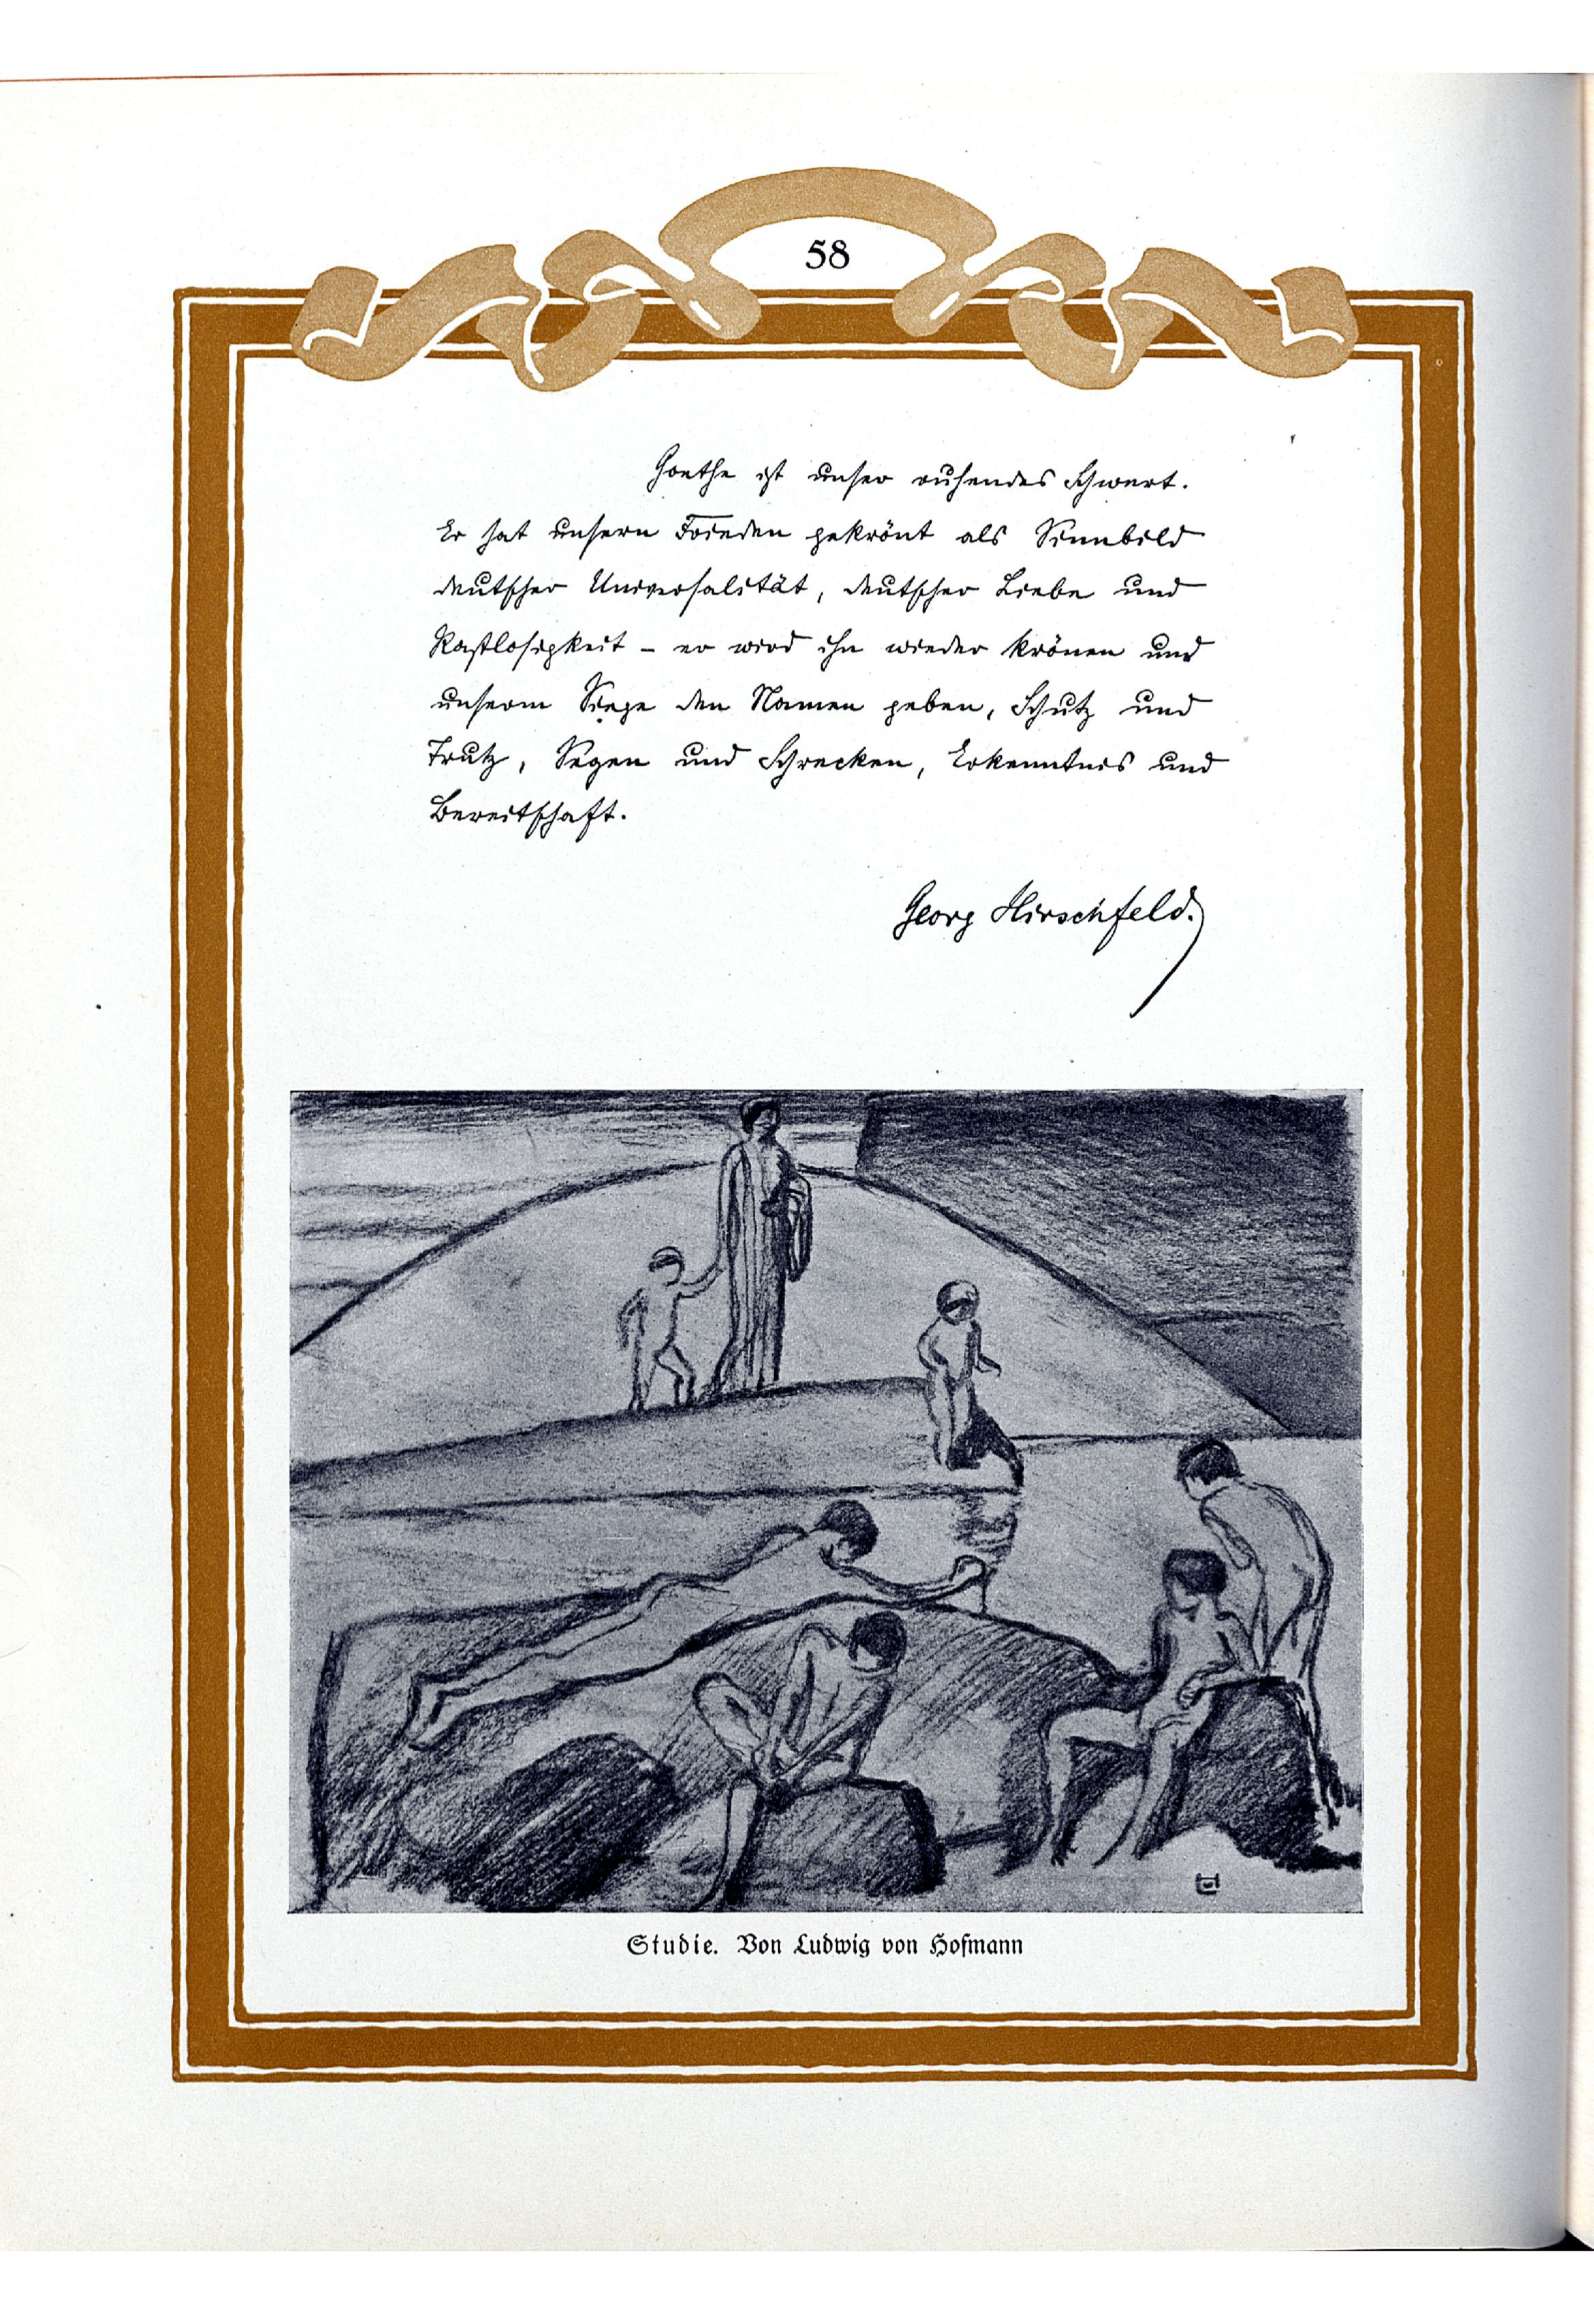 58
Goethe ist unser ruhendes Schwert.
Er hat unsern Frieden gekrönt als Sinnbild
deutscher Universalität, deutscher Liebe und
Rastlosigkeit – er wird ihn wieder krönen und
unserm Siege den Namen geben, Schutz und
Trutz, Segen und Schrecken, Erkenntnis und
Bereitschaft.
Georg Hirschfeld.
Studie. Von Ludwig von Hofmann